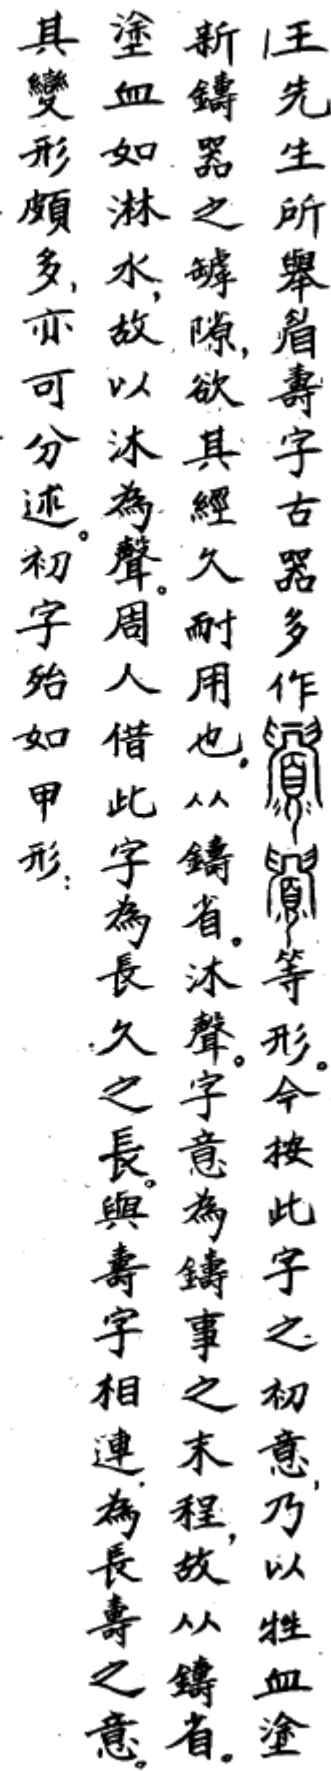 王先生所舉眉壽字古器多作等形。今按此字之初意，乃以牲血塗
新鑄器之罅隙，欲其經久耐用也。从鑄省。沬聲。字意為鑄事之末程，故从鑄省。
塗血如淋水，故以沬為聲。周人借此字為長久之長。與壽字相連，為長壽之意。
其變形頗多，亦可分述。初字殆如甲形：